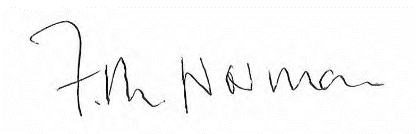 F.M. Norman